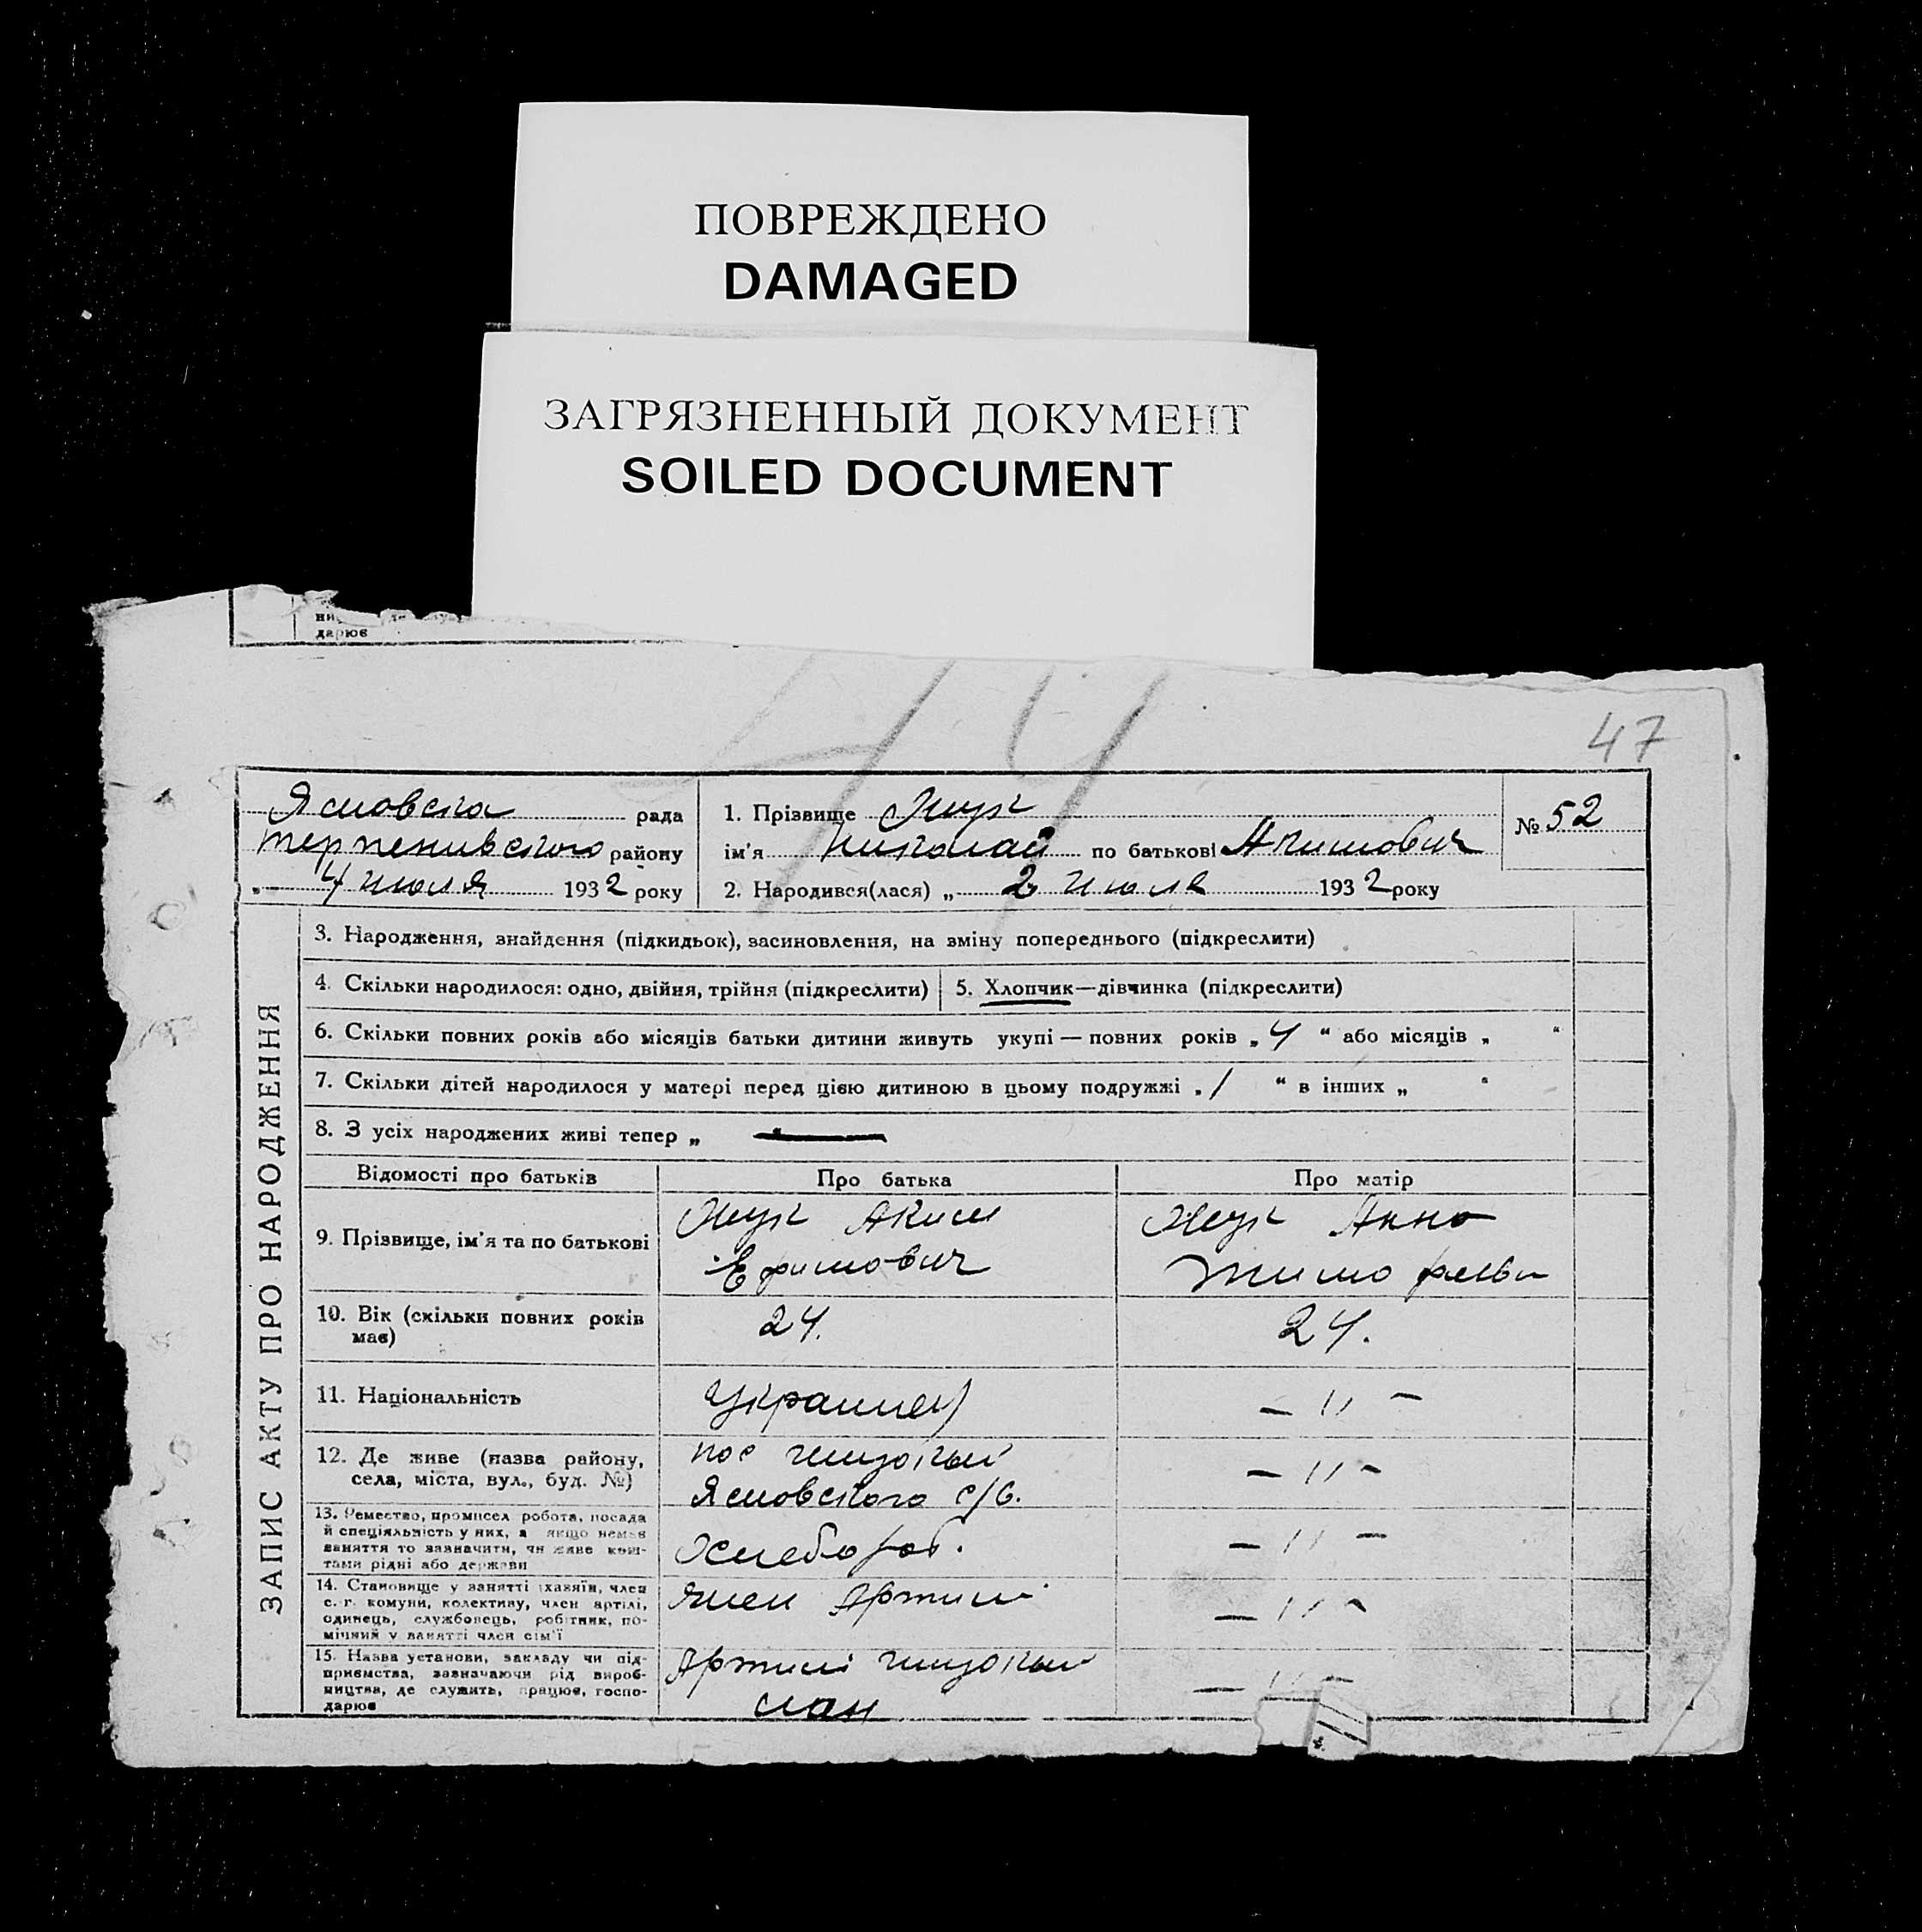 ПОВРЕЖДЕНО
DAMAGED
ЗАГРЯЗНЕННЫЙ ДОКУМЕНТ
SOILED DOCUMENT
дарює
44
47
Ясновска рада
Терпенивского району
4 июля 1932 року
1. Прізвище Жук
ім'я Николай по батькові Акимович
№ 52
2. Народився(лася) „ 2 июля 1932 року
ЗАПИС АКТУ ПРО НАРОДЖЕННЯ
3. Народження, знайдення (підкидьок), засиновлення, на зміну попереднього (підкреслити)
4. Скільки народилося: одно, двійня, трійня (підкреслити) 5. Хлопчик—дівчинка (підкреслити)
6. Скільки повних років або місяців батьки дитини живуть укупі — повних років „ 4 “ або місяців „ “
7. Скільки дітей народилося у матері перед цією дитиною в цьому подружжі „ 1 “ в інших „ “
8. З усіх народжених живі тепер „
Відомості про батьків Про батька Про матір
9. Прізвище, ім'я та по батькові
Жук Аким
Ефимович
Жук Анна
Тимофеевн
10. Вік (скільки повних років
має)
24.
24.
11. Національність
Украинец
— " —
12. Де живе (назва району,
села, міста, вул., буд. №)
пос
Ясновского с/с.
— " —
13. Ремество, промисел робота, посада
й спеціяльність у них, а якщо немає
заняття то зазначити, чи живе кош-
тами рідні або держави
Хлебороб.
— " —
14. Становище у занятті (хазяїн, член
с.-г. комуни, колективу, член артілі,
одинець, службовець, робітник, по-
мічний у занятті член сім'ї
Член Артили
— " —
15. Назва установи, закладу чи під-
приємства, зазначаючи рід вироб-
ництва, де служить, працює, госпо-
дарює
Артиль
— " —